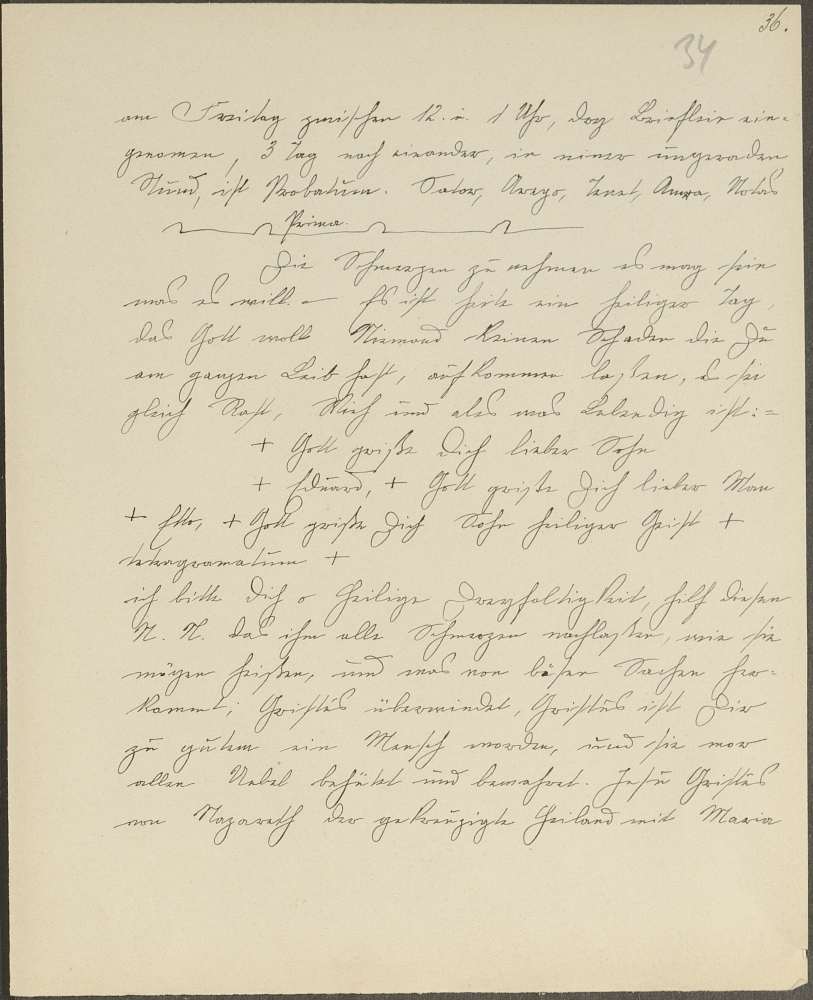 36.
34
am Freitag zwischen 12. u. 1 Uhr, dog Brieflein ein=
genomen, 3 Tag noch einander, in einer ungeraden
Stund, ist Probatum. Sator, Arepo, Tenet, Notas
Prima.
Die Schmerzen zu nehmen es mag sein
was es will. – Es ist heite ein heiliger Tag,
das Gott woll Niemand keinen Schaden die Du
am ganzen Leib hast, aufkommen laßen, es sei
gleich Rost, Vieh und ales was Lebendig ist:=
+ Gott griße Dich lieber Sohn
+ Eduard, + Gott griße Dich lieber Man
+ Etto, + Gott griße Dich Sohn heiliger Geist +
tetragramatum +
ich bitte Dich o Heilige Dreyfaltigkeit, hilf diesen
N. N. das ihm alle Schmerzen nachlaßen, wie sie
mögen heißen, und was von böser Sachen her=
kommt; Gristus überwindet, Gristus ist Dir
zu gutem ein Mensch worden, und sie vor
allen Uebel behütet und bewahret. Jesu Gristus
von Nazareth der gekreuzigte Heiland mit Maria